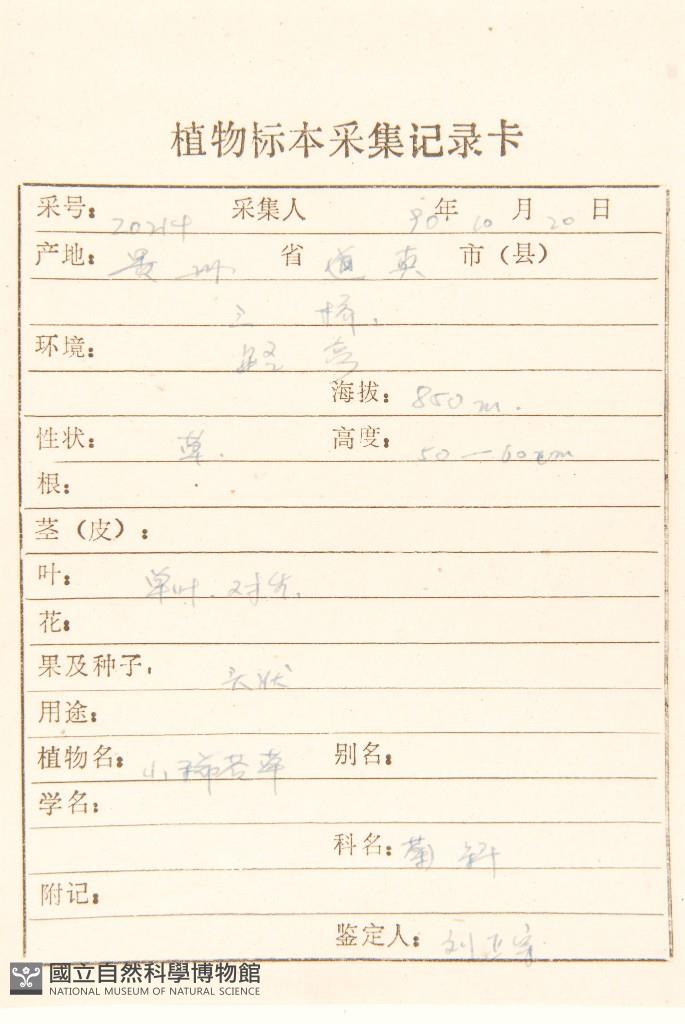 植物标本采集记录卡
采号: 20214 采集人 90年 10月 20日
产地: 贵州 省 道真 市(县)
三桥.
环境: 路旁
海拔: 850 m.
性状: 草. 高度: 50—60cm
根:
茎(皮):
叶: 单叶. 对生.
花:
果及种子. 头状
用途:
植物名: 小稀苦草 别名:
学名:
科名: 菊科
附记:
鉴定人: 刘正宇
國立自然科學博物館
NATIONAL MUSEUM OF NATURAL SCIENCE